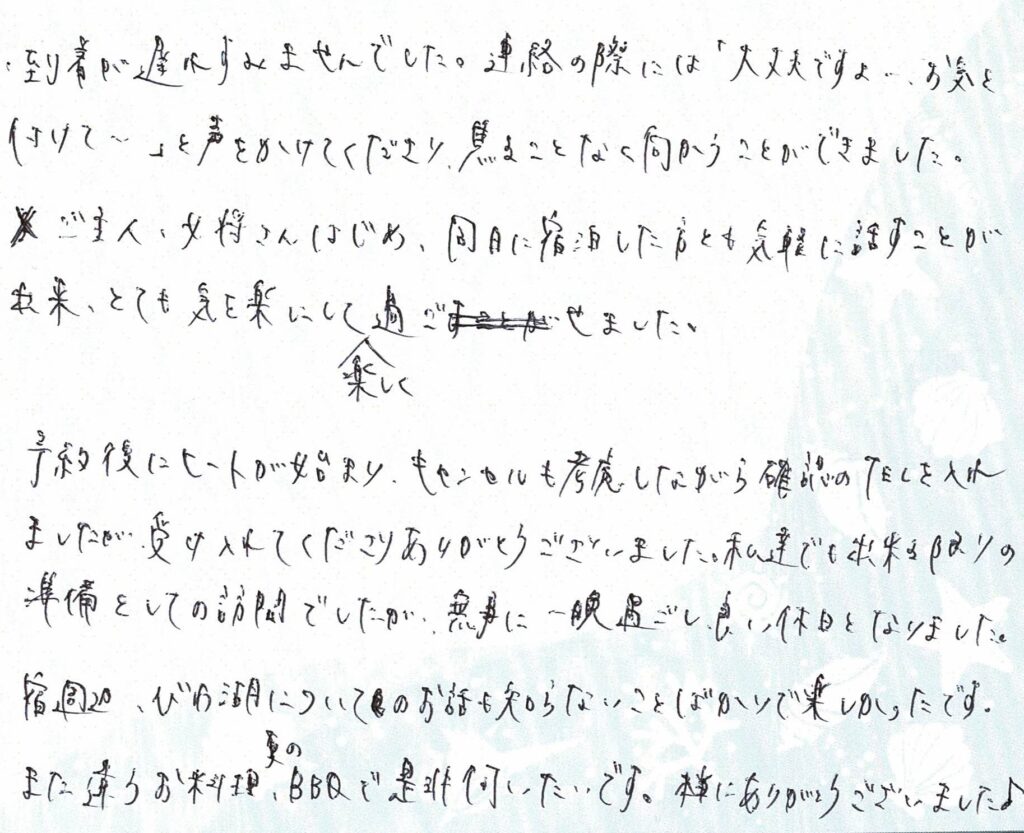 到着が遅れすみませんでした。連絡の際には「大丈夫ですよ〜、お気を
付けて〜」と声をかけてくださり、焦ることなく向かうことができました。
ご主人、女将さんはじめ、同日に宿泊した方とも気軽に話すことが
出来、とても気を楽にして過ごせました。
楽しく
予約後にヒートが始まり、キャンセルも考慮しながら確認のTELを入れ
ましたが、受け入れてくださりありがとうございました。私達でも出来る限りの
準備をしての訪問でしたが、無事に一晩過ごし良い休日となりました。
宿周辺、びわ湖についてのお話も知らないことばかりで楽しかったです。
夏の
また違うお料理、BBQで是非伺いたいです。本当にありがとうございました♪